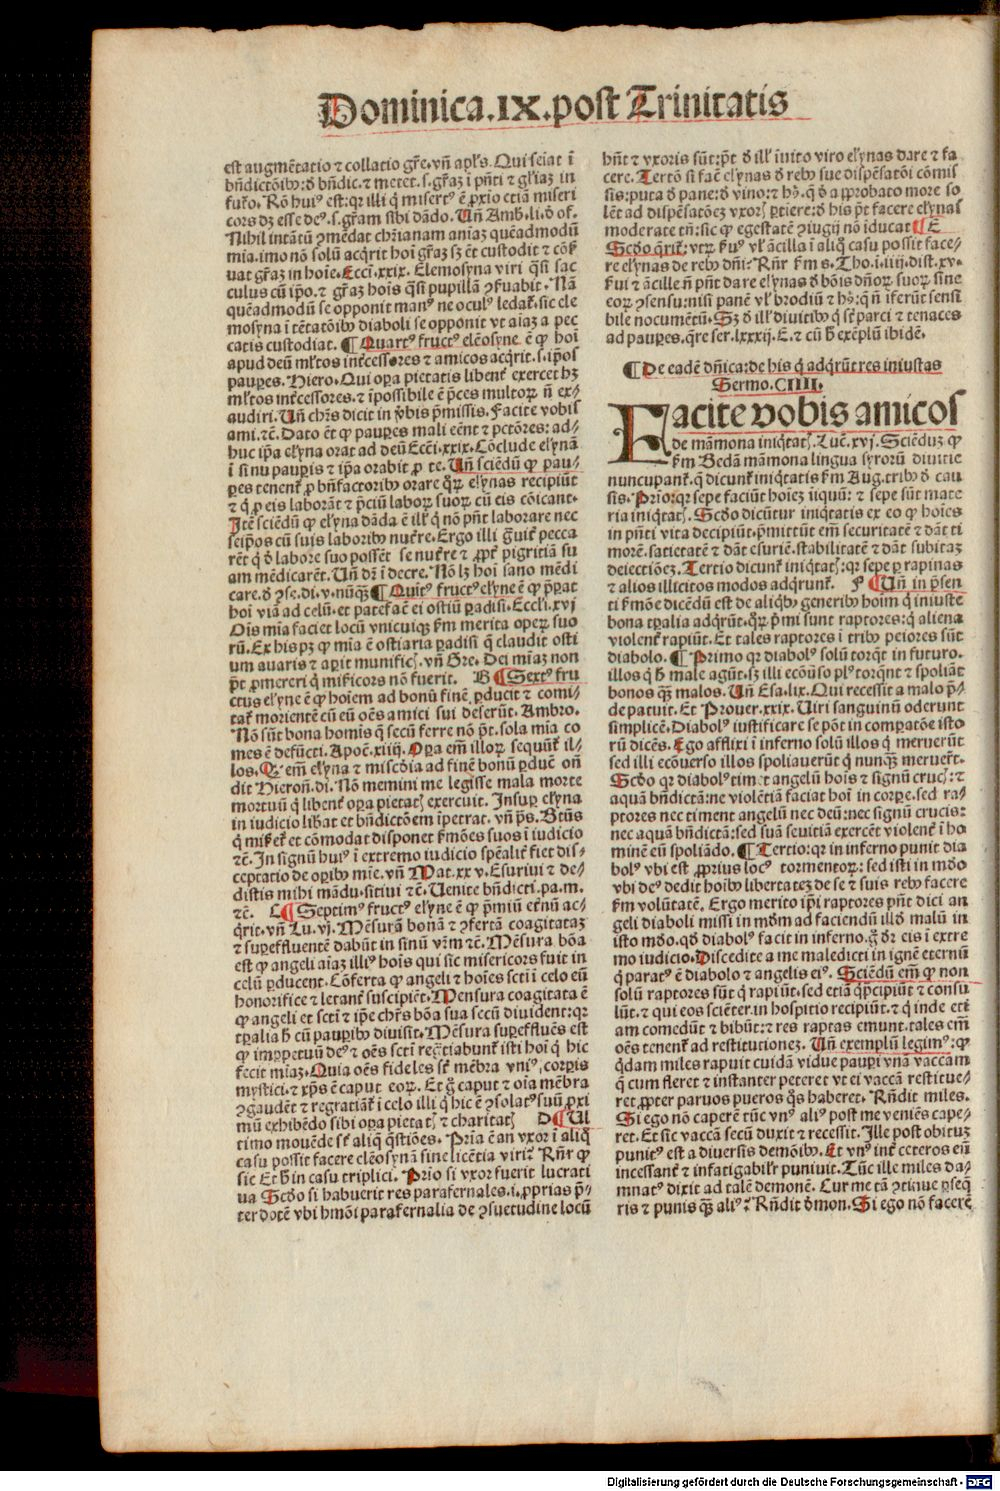 Dominica.IX.post Trinitatis
est augmẽtatio ⁊ collatio gr̃e.vñ apl's. Qui seiat ĩ
bñdictõib9:ð bñdic.⁊ metet.s.gr̃aꝫ ĩ pñti ⁊ gl'iaꝫ in
futr̃o. Rõ hui9 est:qꝛ illi q̇ misert9 ẽ ꝓxio etiã miseri
cors dꝫ esse de9.s.gr̃am sibi dãdo. Uñ Amb.li.ð of.
Nihil intãtũ ꝯmẽdat chr̃ianam aĩaꝫ quẽadmodũ
mia.imo nõ solũ acq̇rit hoĩ gr̃aꝫ sꝫ ẽt custodit ⁊ cõs̃
uat gr̃aꝫ in hoĩe. Ecci.xxix. Elemosyna viri q̃si sac
culus cũ ip̃o.⁊ gr̃aꝫ hoĩs q̃si pupillã ꝯs̃uabit. Nã
quẽadmodũ se opponit man9 ne ocul9 ledat̃.sic ele
mosyna ĩ tẽtatõib9 diaboli se opponit vt aĩaꝫ a pec
catis custodiat. ¶ Quart9 fruct9 elẽosyne ẽ ꝙ hoĩ
apud deũ ml'tos int̃cessores ⁊ amicos acq̇rit.s.ip̃os
pauꝑes. Hiero. Qui oꝑa pietatis libent̃ exercet hꝫ
ml'tos int̃cessores.⁊ ĩpossibile ẽ p̃ces multoꝝ nõ ex⸗
audiri. Uñ chr̃s dicit in v̾bis p̃missis. Facite vobis
ami.⁊c̃. Dato ẽt ꝙ pauꝑes mali eẽnt ⁊ pctõres: ad⸗
huc ip̃a elyna orat ad deũ Ecci.xxix. Cõclude elynã
ĩ sinu pauꝑis ⁊ ip̃a orabit ꝓ te. Uñ sciẽdũ ꝙ pau⸗
ꝑes tenent̃ ꝓ bñfactorib9 orare q̃ꝝ elynas recipiũt
⁊ q̇ ꝓ eis laborãt ⁊ p̃ciũ laboꝝ suoꝝ cũ eis cõicant.
Itẽ sciẽdũ ꝙ elyna dãda ẽ ill' q̇ nõ pñt laborare nec
seip̃os cũ suis laborib9 nut̃re. Ergo illi g̃uit̃ pecca
rẽt q̇ ð labore suo possẽt se nut̃re ⁊ ꝓpt̃ pigritiã su
am mẽdicarẽt. Uñ dr̃ ĩ decre. Nõ lꝫ hoĩ sano mẽdi
care.ð ꝯse.di.v.nũq̃ꝫ ¶ Quĩt9 fruct9 elyne ẽ ꝙ p̃ꝑat
hoĩ viã ad celũ.⁊ patefac̃ ei ostiũ ꝑadisi. Eccl'i.xvj
Oĩs mĩa faciet locũ vnicuiqꝫ s̃m merita opeꝝ suo
rũ. Ex his pꝫ ꝙ mĩa ẽ ostiaria ꝑadisi q̃ claudit osti
um auaris ⁊ aꝑit munific̃.vñ Gre. Dei mĩaꝫ non
p̃t ꝓmereri q̇ mis̃icors nõ fuerit. B ¶ Sext9 fru
ctus elyne ẽ ꝙ hoĩem ad bonũ finẽ ꝑducit ⁊ comi⸗
tat̃ morientẽ cũ eũ oẽs amici sui deserũt. Ambro.
Nõ sũt bona homĩs q̃ secũ ferre nõ p̃t.sola mĩa co
mes ẽ defũcti. Apoc̃.xiiij. Oꝑa em̃ illoꝝ sequũt̃ il⸗
los. Q̃ em̃ elyna ⁊ misc̃dia ad finẽ bonũ ꝑducẽ oñ
dit Hieron̄.di. Nõ memini me legisse mala morte
mortuũ q̇ libent̃ oꝑa pietat̃ exercuit. Insuꝑ elyna
in iudicio lib̾at et bñdictõem ĩpetrat. vñ p̃s. Bt̃us
q̇ mis̃et̃ et cõmodat disponet s̃mões suos ĩ iudicio
⁊c̃. In signũ hui9 ĩ extremo iudicio sp̃ealit̃ fiet dis⸗
ceptatio de oꝑib9 mĩe.vñ Mat.xxv. Esuriui ⁊ de⸗
distis mihi mãdu.sitiui ⁊c̃. Uenite bñdicti.pa.m.
⁊c̃. C ¶ Septim9 fruct9 elyne ẽ ꝙ p̃miũ et̃nũ ac⸗
q̇rit.vñ Lu.vj. Mẽsurã bonã ⁊ ꝯfertã coagitataꝫ
⁊ suꝑeffluentẽ dabũt in sinũ vr̃m ⁊c̃. Mẽsura bõa
est ꝙ angeli aĩaꝫ illi9 hoĩs qui sic misericors fuit in
celũ ꝑducent. Cõferta ꝙ angeli ⁊ hoĩes scti ĩ celo eũ
honorifice ⁊ letant̃ suscipiẽt. Mensura coagitata ẽ
ꝙ angeli et sctĩ ⁊ ip̃e chr̃s bõa sua secũ diuident:qꝛ
tꝑalia h̾ cũ pauꝑib9 diuisit. Mẽsura suꝑeffluẽs est
ꝙ imꝑpetuũ de9 ⁊ oẽs sctĩ regr̃tiabunt̃ isti hoĩ q̇ hic
fecit mĩaꝫ. Quia oẽs fideles st̃ mẽbra vni9 corꝑis
mystici.⁊ xp̃s ẽ caput eoꝝ. Et g̊ caput ⁊ oĩa mẽbra
ꝯgaudẽt ⁊ regratiãt̃ ĩ celo illi q̇ hic ẽ ꝯsolat9 suũ ꝓxi
mũ exhibẽdo sibi oꝑa pietat̃ ⁊ charitat̃ D ¶ Ul
timo mouẽde st̃ aliq̃ q̃stiões. Pria ẽ an vxor ĩ aliq̊
casu possit facere elẽosynã sine licẽtia viri? Rñr̃ ꝙ
sic Et h̾ in casu triplici. Prio si vxor fuerit lucrati
ua Scðo si habuerit res parafernales.i.ꝓprias p̃⸗
ter dotẽ vbi hmõi parafernalia de ꝯsuetudine locũ
hñt ⁊ vxoris sũt:p̃t ð ill' ĩuito viro elynas dare ⁊ fa
cere. Tertõ si fac̃ elynas ð reb9 sue dispẽsatõi cõmis
sis:puta ð pane:ð vino:⁊ hꝫ.q̇ ð aꝓbato more so
lẽt ad dispẽsatõeꝫ vxoꝝ ꝑtiere:ð his p̃t facere elynas
moderate tñ:sic ꝙ egestatẽ ꝯiugij nõ iducat ¶ E
Scðo q̃rit̃:vtꝝ s̃u9 vl' ãcilla ĩ aliq̊ casu possit face⸗
re elynas de reb9 dñi? Rñr̃ s̃m s. Tho.i.iiij.dist.xv.
s̃ui ⁊ ãcille nõ pñt dare elynas ð bõis dñoꝝ suoꝝ sine
eoꝝ ꝯsensu:nisi panẽ vl' brodiũ ⁊ hꝫ:q̃ nõ ĩferũt sensi
bile nocumẽtũ. Sꝫ ð ill' diuitib9 q̇ st̃ parci ⁊ tenaces
ad pauꝑes.q̃re ser.lxxxij. E.⁊ cũ h̾ exẽplũ ibidẽ.
¶ De eadẽ dñica:de his q̇ adq̇rũt res iniustas
Sermo. CIIII.
Facite vobis amicos
de mãmona iniq̇tat̃. Luc̃.xvj. Sciẽduꝫ ꝙ
s̃m Bedã mãmona lingua syroruũ diuitie
nuncupant̃.q̃ dicunt̃ iniq̇tatis s̃m Aug.trib9 ð cau
sis. Prio:qꝛ sepe faciũt hoĩeꝫ iiquũ: ⁊ sepe sũt mate
ria iniq̇tat̃. Scðo dicũtur iniq̇tatis ex eo ꝙ hoĩes
in pñti vita decipiũt.p̃mittũt em̃ securitatẽ ⁊ dãt ti
morẽ.satietatẽ ⁊ dãt esuriẽ.stabilitatẽ ⁊ dãt subitaꝫ
deiectiõeꝫ. Tertio dicunt̃ iniq̇tat̃:qꝛ sepe ꝑ rapinas
⁊ alios illicitos modos adq̇runt̃. F ¶ Uñ in p̃sen
ti s̃mõe dicẽdũ est de aliq̇b9 generib9 hoĩm q̇ iniuste
bona tꝑalia adq̇rũt.q̃ꝝ p̃mi sunt raptores:q̇ aliena
violent̃ rapiũt. Et tales raptores ĩ trib9 peiores sũt
diabolo. ¶ Primo qꝛ diabol9 solũ torq̃t in futuro.
illos q̇ h̾ male agũt.sꝫ illi ecõu̾so pl9 torq̃nt ⁊ spoliãt
bonos q̃ꝫ malos. Uñ Esa.lix. Qui recessit a malo p̃⸗
de patuit. Et Prouer.xxix. Uiri sanguinũ oderunt
simplicẽ. Diabol9 iustificare se põt in comparatõe isto
rũ dicẽs. Ego afflixi ĩ inferno solũ illos q̇ meruerũt
sed illi ecõuerso illos spoliauerũt q̇ nunq̃ꝫ meruer̃t.
Scðo qꝛ diabol9 timet angelũ hoĩs ⁊ signũ cruc̃:⁊
aquã bñdictã:ne violẽtiã faciat hoĩ in corꝑe.sed ra⸗
ptores nec timent angelũ nec deũ:nec signũ crucis:
nec aquã bñdictã:sed suã seuitiã exercẽt violent̃ ĩ ho
minẽ eũ spoliãdo. ¶ Tertio:qꝛ in inferno punit dia
bol9 vbi est ꝓprius loc9 tormentoꝝ: sed isti in mũdo
vbi de9 dedit hoĩb9 libertateꝫ de se ⁊ suis reb9 facere
s̃m volũtatẽ. Ergo merito ip̃i raptores pñt dici an
geli diaboli missi in mũdm ad faciendũ illð malũ in
isto mũdo.qð diabol9 facit in inferno.g̊ dr̃ eis ĩ extre
mo iudicio. Discedite a me maledicti in ignẽ eternũ
q̇ parat9 ẽ diabolo ⁊ angelis ei9. Sciẽdũ em̃ ꝙ non
solũ raptores sũt q̇ rapiũt.sed etiã q̇ p̃cipiũt ⁊ consu
lũt.⁊ qui eos sciẽter in hospitio recipiũt.⁊ q̇ inde eti
am comedũt ⁊ bibũt:⁊ res raptas emunt.tales em̃
oẽs tenent̃ ad restitutioneꝫ. Uñ exemplũ legim9:ꝙ
q̇dam miles rapuit cuidã vidue pauꝑi vnã vaccam
q̃ cum fleret ⁊ instanter peteret vt ei vaccã restitue⸗
ret ꝓpter paruos pueros q̃s haberet. Rñdit miles.
Si ego nõ caperẽ tũc vn9 ali9 post me veniẽs cape⸗
ret. Et sic vaccã secũ duxit ⁊ recessit. Ille post obituꝫ
punit9 est a diuersis demõib9. Et vn9 int̃ ceteros eũ
incessant̃ ⁊ infatigabilr̃ puniuit. Tũc ille miles da⸗
mnat9 dixit ad talẽ demonẽ. Cur me tã ꝯtinue ꝑseq̃
ris ⁊ punis q̃ꝫ ali9? Rñdit ðmon. Si ego nõ facerẽ
Digitalisierung gefördert durch die Deutsche Forschungsgemeinschaft - DFG